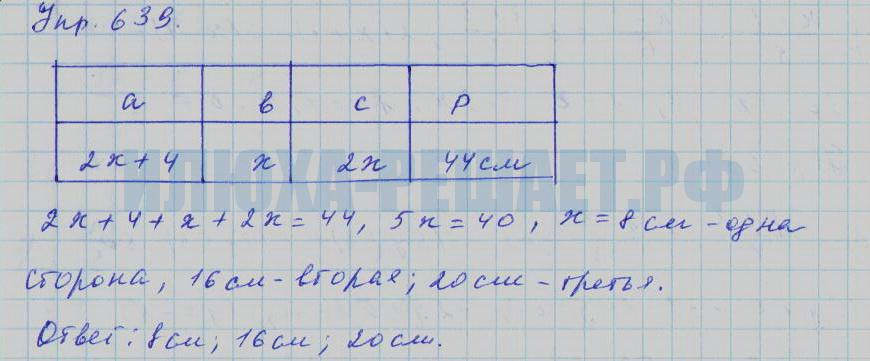 Упр. 639.
a в c P
2x+4 x 2x 44см
ИЛЮХА-РЕШАЕТ.РФ
2x+4+x+2x=44, 5x=40, x=8см-одна
сторона, 16см-вторая; 20см-третья.
Ответ: 8см; 16см; 20см.